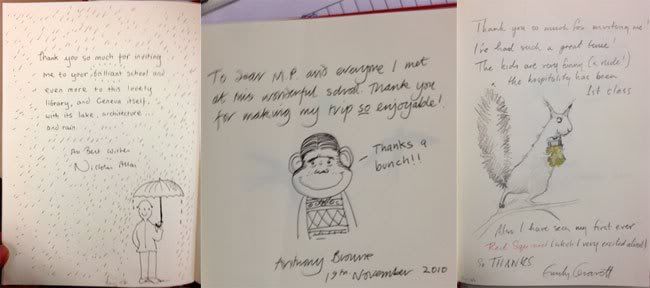 Thank you so much for inviting
me to your brilliant school and
even more to this lovely
library, and Geneva itself,
with its lake, architecture
and rain.
All Best Wishes
Nicholas Allan
To dear M.P. and everyone I met
at this wonderful school. Thank you
for making my trip so enjoyable!
Thanks a
bunch!!
Anthony Browne
19th November 2010
Thank you so much for inviting me!
I've had such a great time!
The kids are very funny (& rude!)
the hospitality has been
1st class
Also I have seen my first ever
Red Squirrel (which I very excited about!)
So THANKS
Emily Gravett